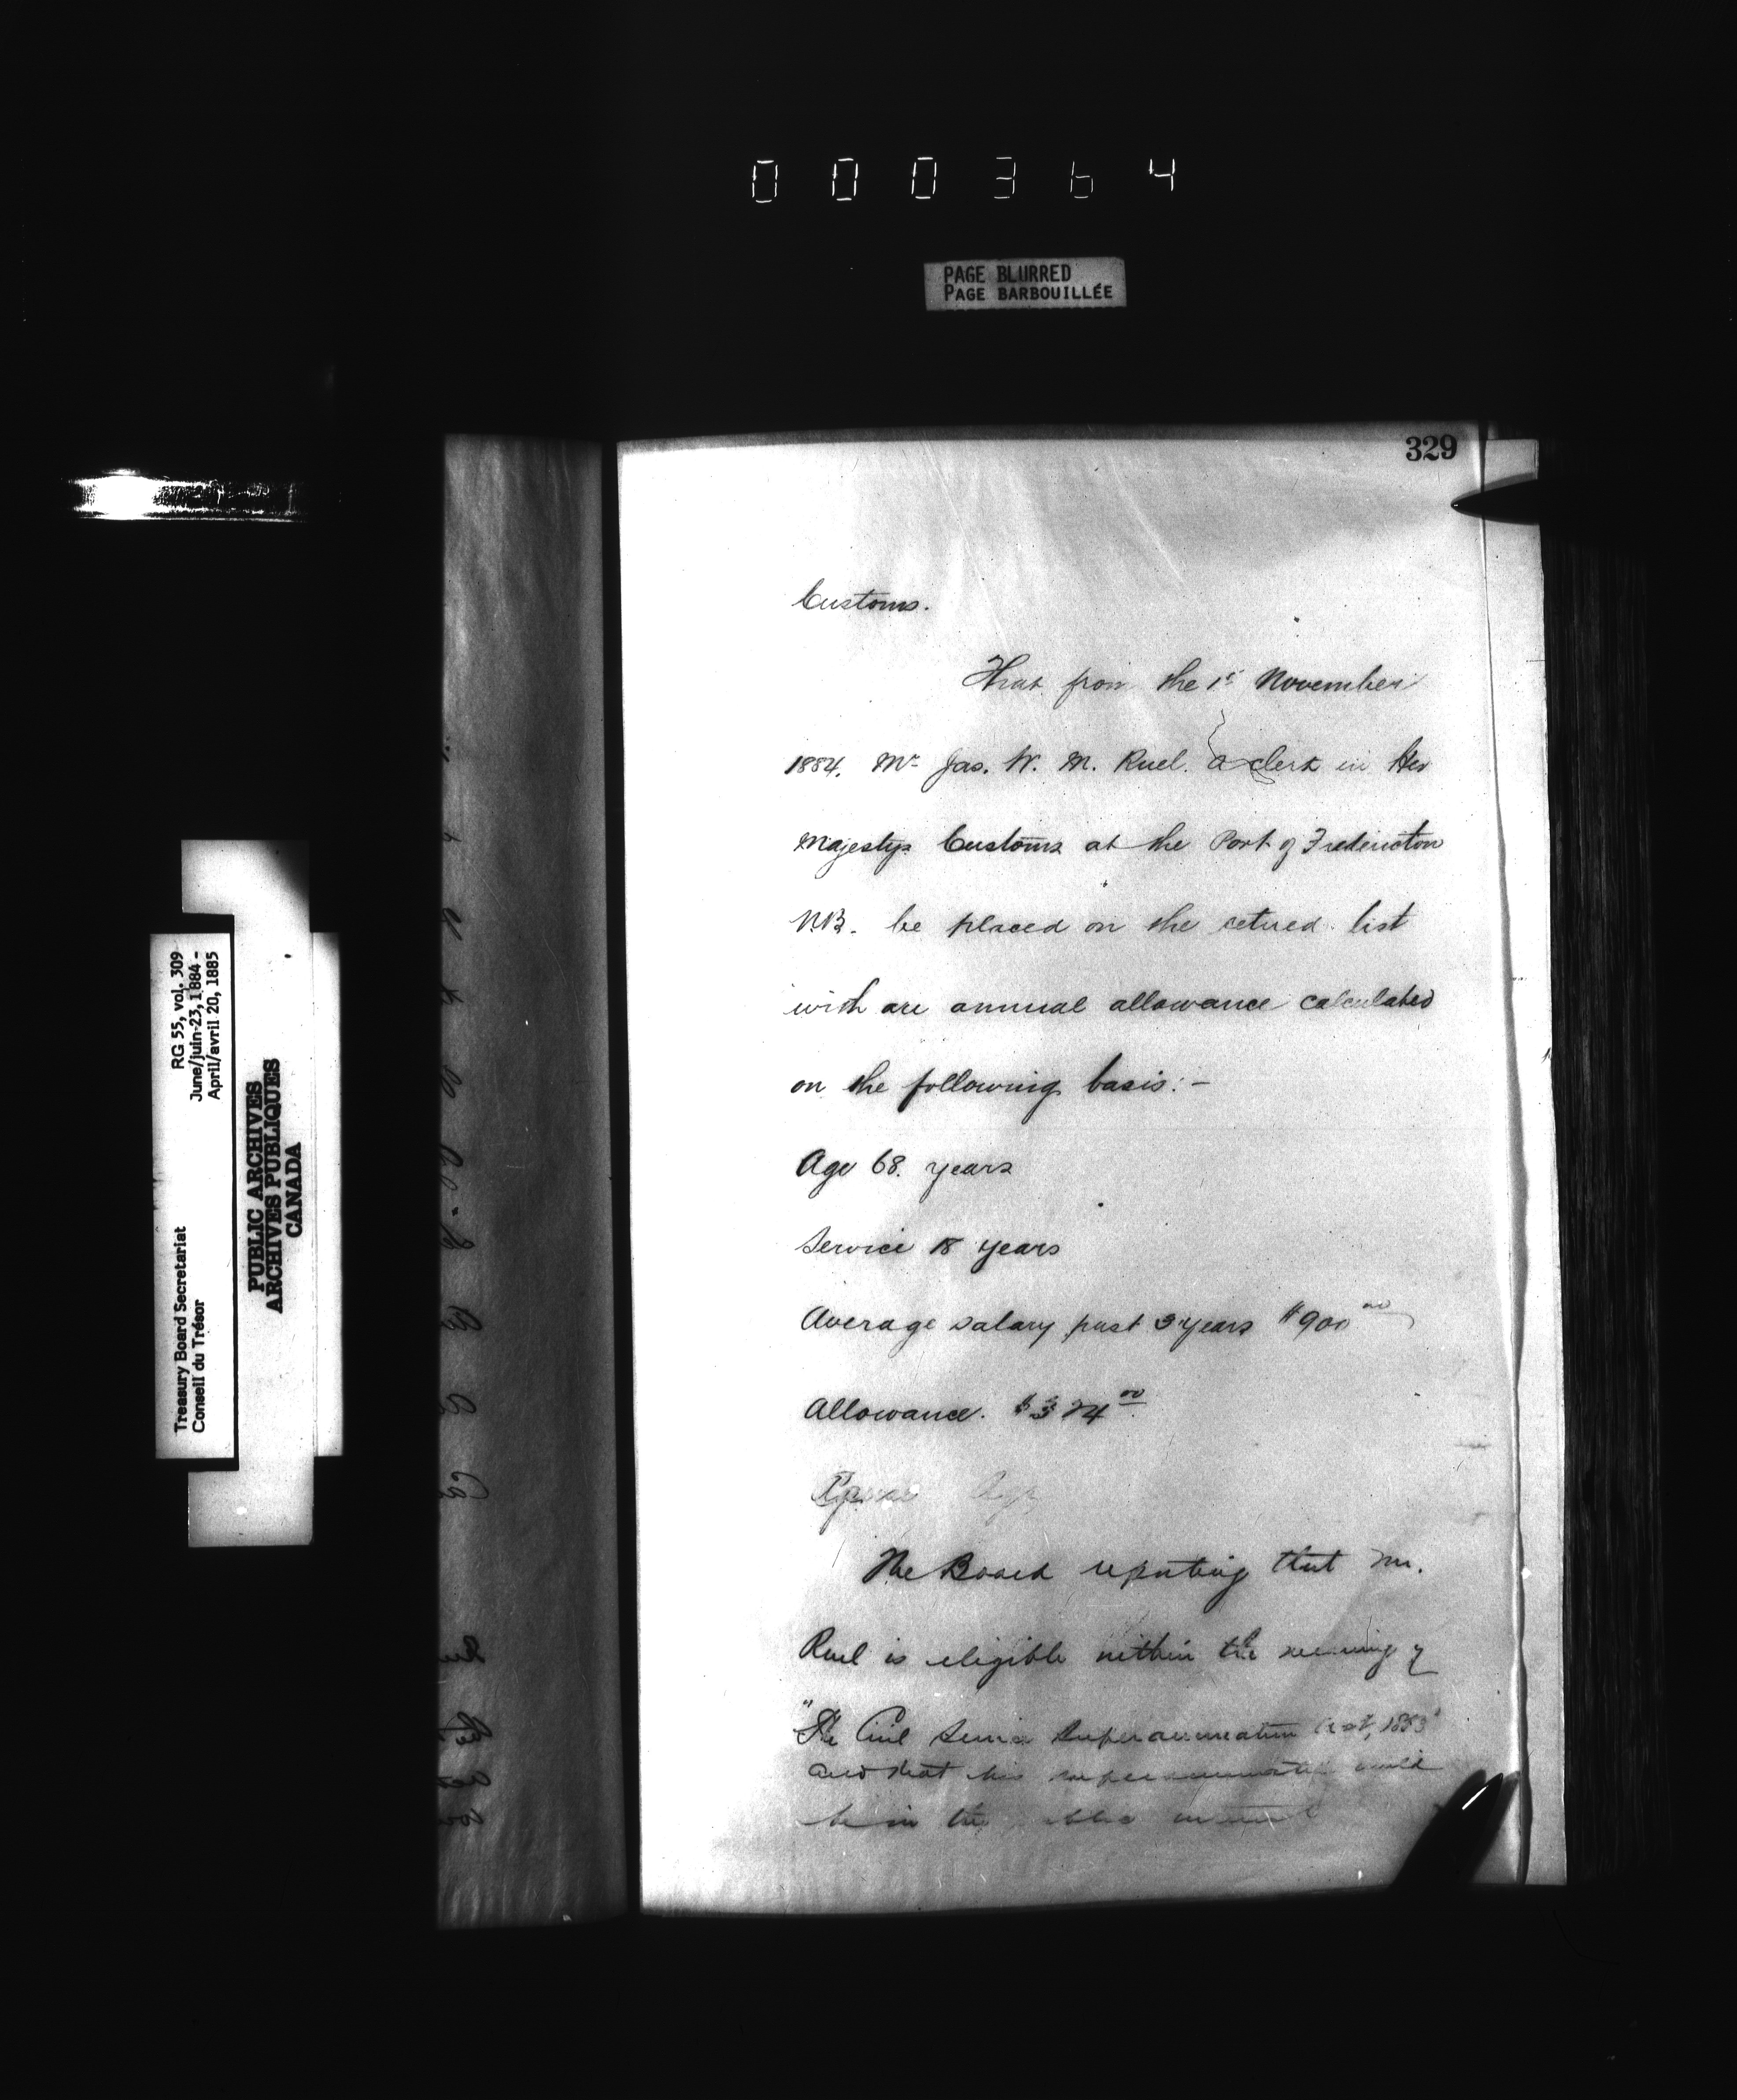 000364
PAGE BLURRED
PAGE BARBOUILLÉE
329
Customs.
That from the 1st November
1884, Mr Jas. W. M. Ruel. a clerk in Her
Majestys Customs at the Port of Fredericton
N.B. be placed on the retired list
with an annual allowance calculated
on the following basis:-
Age 68. years
Service 18 years
Average salary past 3 years $900 00
Allowance. $324 00
The Board reporting that Mr.
Ruel is eligible within the meaning of
"The Civil Service Superannuation Act, 1883"
and that his superannuation would
be in the public interest
RG 55, vol. 309
June/juin-23, 1884 -
April/avril 20, 1885
Treasury Board Secretariat
Conseil du Trésor
PUBLIC ARCHIVES
ARCHIVES PUBLIQUES
CANADA